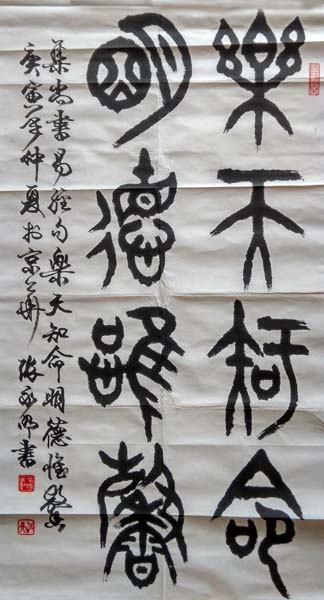 樂天知命
明德惟馨
集尚書易經句樂天知命明德惟馨
庚寅年仲夏於京華 張 書